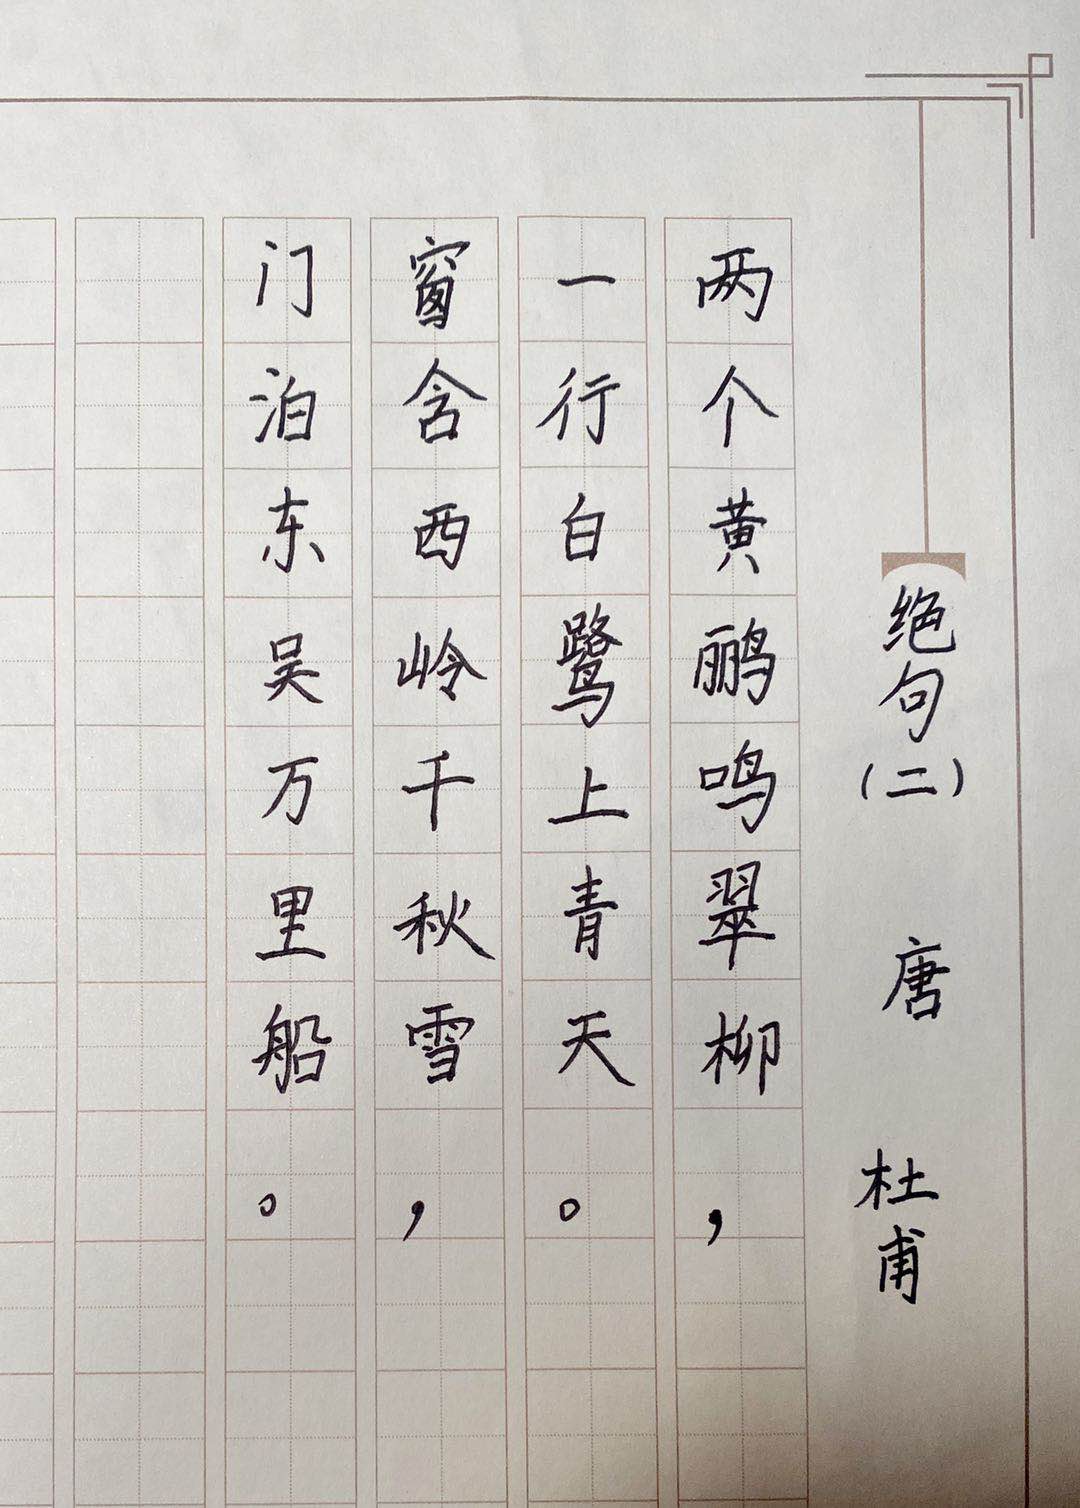 绝句（二） 唐 杜甫
两个黄鹂鸣翠柳，
一行白鹭上青天。
窗含西岭千秋雪，
门泊东吴万里船。